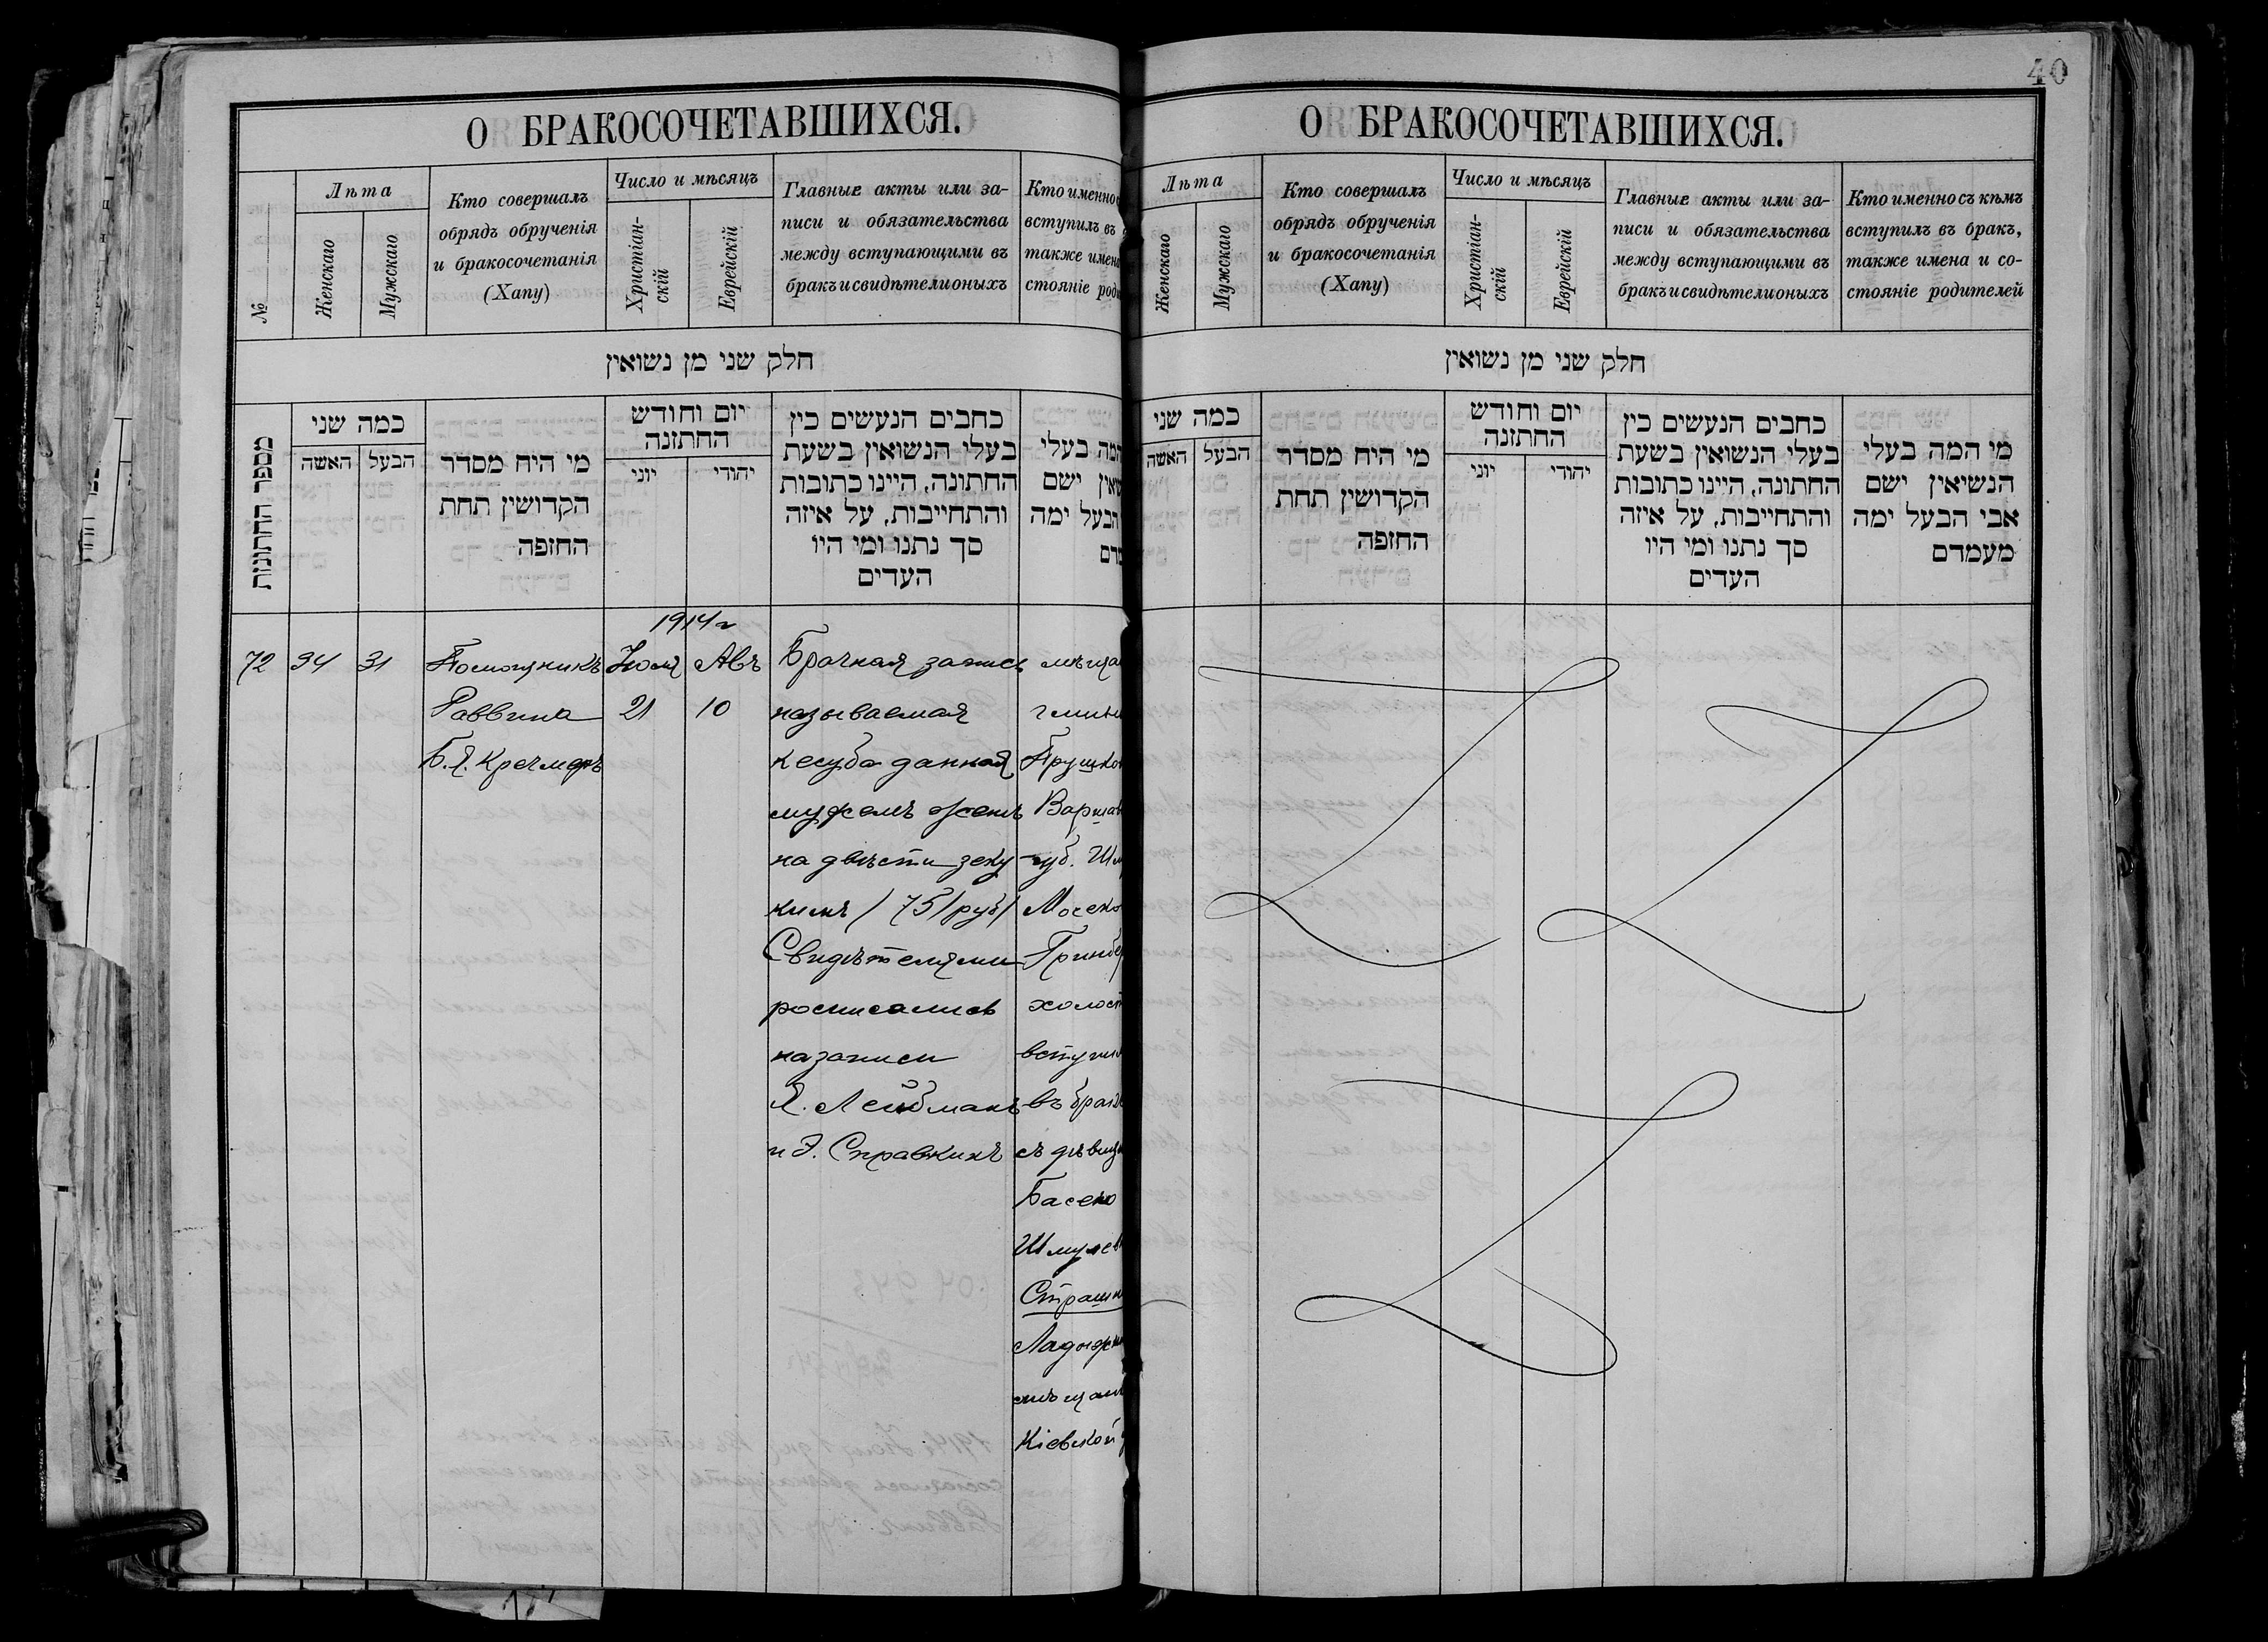 40
О БРАКОСОЧЕТАВШИХСЯ.
№
Лѣта
Женскаго
Мужскаго
Кто совершалъ
обрядъ обрученія
и бракосочетанія
(Хапу)
Число и мѣсяцъ
Христіан-
скій
Еврейскій
Главные акты или за-
писи и обязательства
между вступающими въ
бракъ и свидѣтели оныхъ
Кто именно
вступилъ въ
также имена
стояніе
חלק שני מן נשואין
מספר החתונות
כמה שני
האשה
הבעל
מי היח מסדר
הקדושין תחת
החופה
יום וחודש
החתונה
יוני
יהודי
כחבים הנעשים כין
בעלי הנשואין בשעת
החתונה, היינו כתובות
והתחייבות, על איזה
סך נתנו ומי היו
העדים
המה בעלי
ישם
הבעל ימה
1914 г
72
34
31
Помощникъ
Раввина
Б.Я. Кречмеръ
Іюля
21
Авъ
10
Брачная запись
называемая
кесуба данная
мужемъ женѣ
на двѣсти зеку
кимъ / 75 / руб /
Свидѣтелями
росписались
на записи
Я. Лейбманъ
и Э. Справкинъ
мѣща
гмины
Прушко
Варшав
губ.
Мосеко
Гринбе
холост
вступил
въ бракъ
съ дѣвиц
Басею
Шмулев
Страш
Ладыж
мѣщан
Кіевской
О БРАКОСОЧЕТАВШИХСЯ.
Лѣта
Женскаго
Мужскаго
Кто совершалъ
обрядъ обрученія
и бракосочетанія
(Хапу)
Число и мѣсяцъ
Христіан-
скій
Еврейскій
Главные акты или за-
писи и обязательства
между вступающими въ
бракъ и свидѣтели оныхъ
Кто именно съ кѣмъ
вступилъ въ бракъ,
также имена и со-
стояніе родителей
חלק שני מן נשואין
כמה שני
האשה
הבעל
מי היח מסדר
הקדושין תחת
החופה
יום וחודש
החתונה
יוני
יהודי
כחבים הנעשים כין
בעלי הנשואין בשעת
החתונה, היינו כתובות
והתחייבות, על איזה
סך נתנו ומי היו
העדים
מי המה בעלי
הנשיאין ישם
אבי הבעל ימה
מעמדם